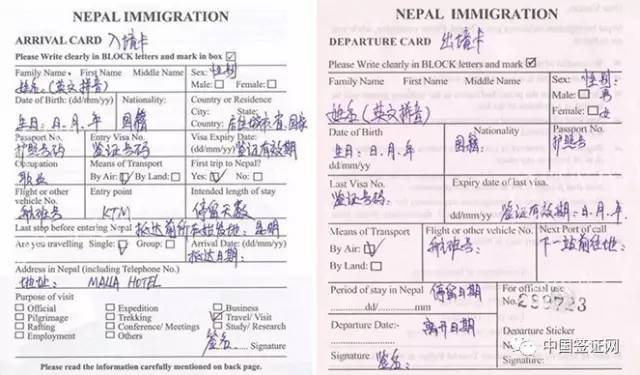 NEPAL IMMIGRATION
ARRIVAL CARD 入境卡
Please Write clearly in BLOCK letters and mark in box
Family Name First Name Middle Name Sex: 性别
姓名(英文拼音) Male: Female:
Date of Birth: (dd/mm/yy) Nationality: Country or Residence
City: State:
生日:日.月.年 国籍 Country: 居住城市.省.国家
Passport No. Entry Visa No. Visa Expiry Date:
护照号码 签证号码 (dd/mm/yy) 签证有效期
Occupation Means of Transport First trip to Nepal?
职业 By Air: By Land: Yes: No:
Flight or other vehicle No. Entry point Intended length of stay
航班号 KTM 停留天数
Last stop before entering Nepal 抵达前所在始发地:昆明
Are you travelling Single: Group: Arrival Date: (dd/mm/yy)
抵达日期:
Address in Nepal (including Telephone No.)
地址: MALLA HOTEL
Purpose of visit
Official Expedition Business
Pilgrimage Trekking Travel/ Visit
Rafting Conference/ Meetings Study/ Research
Employment Others
签名 Signature
Please read the information carefully mentioned on back page.
NEPAL IMMIGRATION
DEPARTURE CARD 出境卡
Please Write clearly in BLOCK letters and mark in box
Family Name First Name Middle Name Sex: 性别:
姓名(英文拼音) Male: 男
Female: 女
Date of Birth Nationality Passport No.
生日:日.月.年 国籍: 护照号
Last Visa No. Expiry date of last visa.
签证号码:
(dd/mm/yy) 签证有效期:日.月.年
Means of Transport Flight or other vehicle No. Next Port of call
By Air: 航班号: 下一站前往地:
By Land:
Period of stay in Nepal 停留日期 For official use
dd/ mm/ No.
Departure Date:- 离开日期 Departure Sticker
Signature: 签名: No.
中国签证网